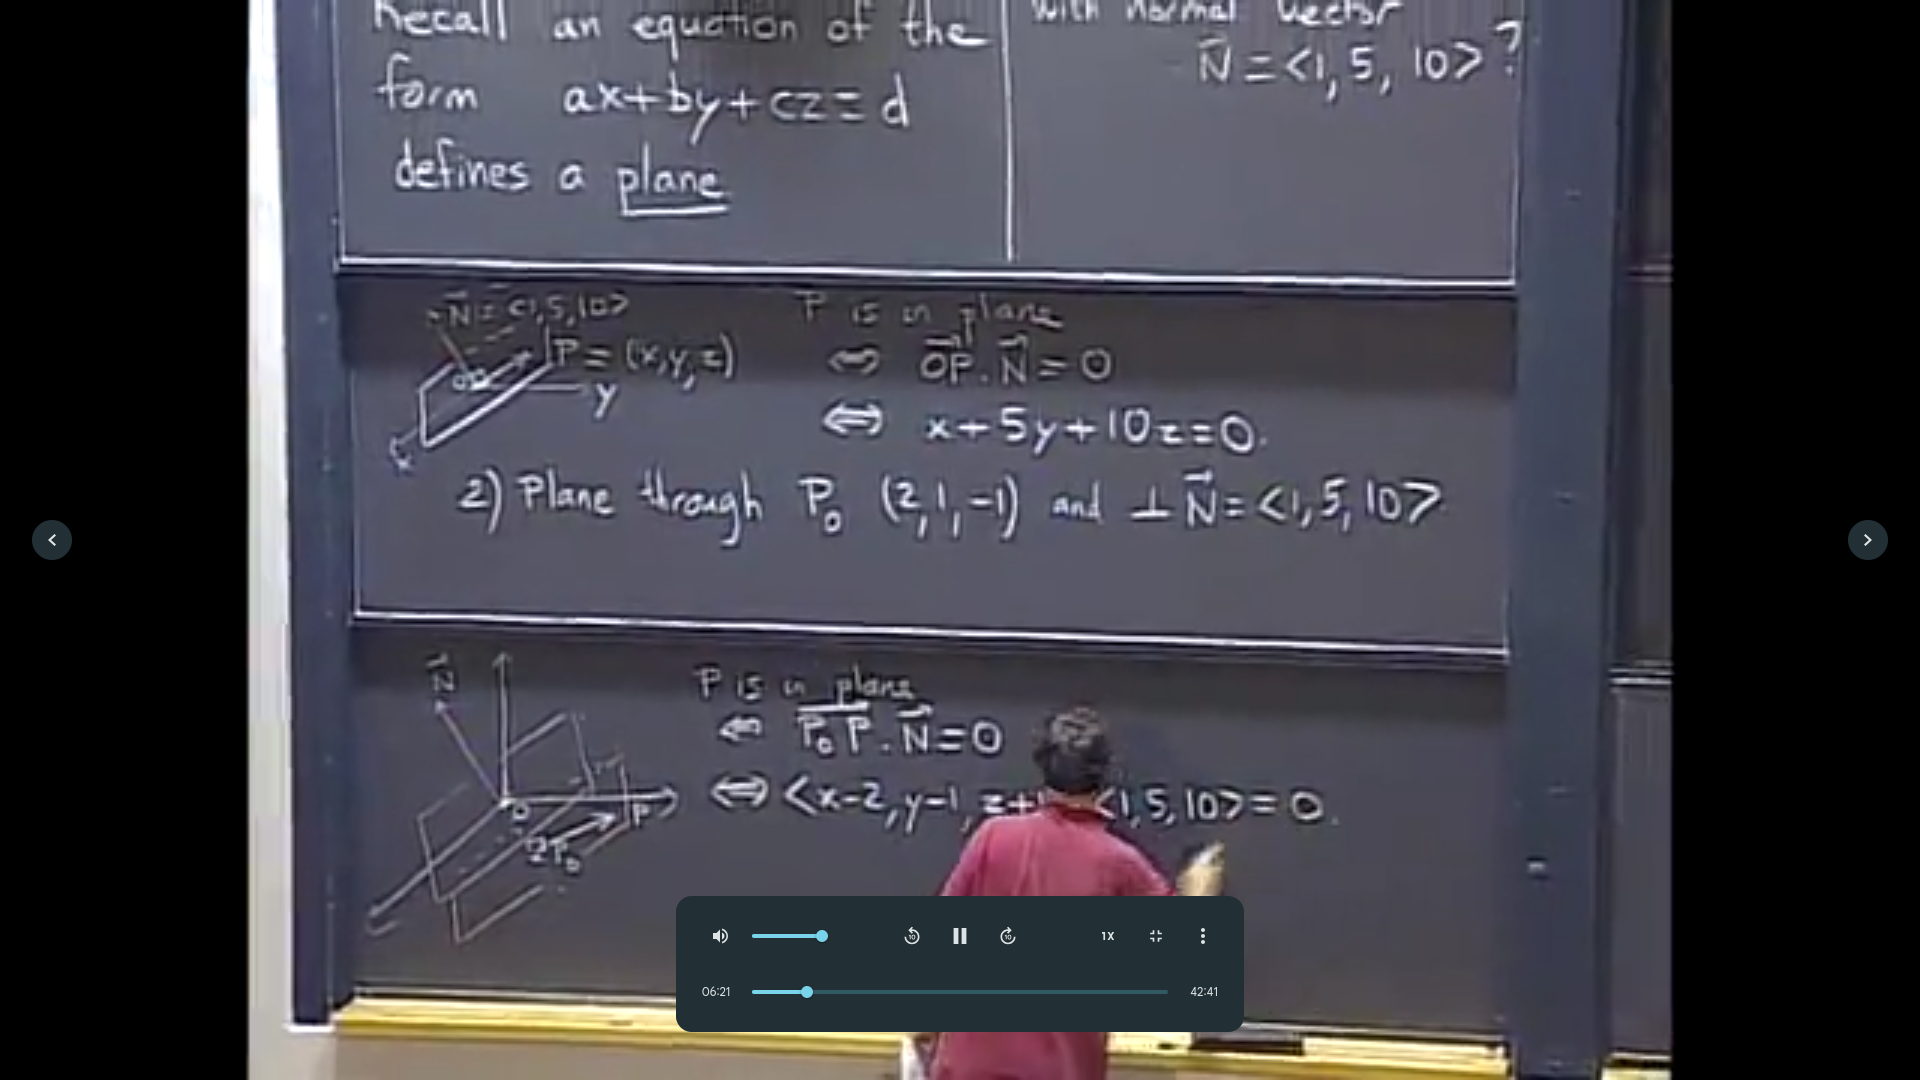 Recall an equation of the
form ax+by+cz=d
defines a plane
with normal vector
N⃗ = <1, 5, 10> ?
N⃗ = <1,5,10>
P = (x,y,z)
O
y
x
P is in plane
⇔ OP⃗ . N⃗ = 0
⇔ x+5y+10z=0.
2) Plane through P₀ (2,1,-1) and ⊥ N⃗ = <1,5,10>
N⃗
O
P
P₀
P is in plane
⇔ P₀P⃗ . N⃗ = 0
⇔ <x-2, y-1, z+1 <1,5,10> = 0.
10
10
1X
06:21
42:41